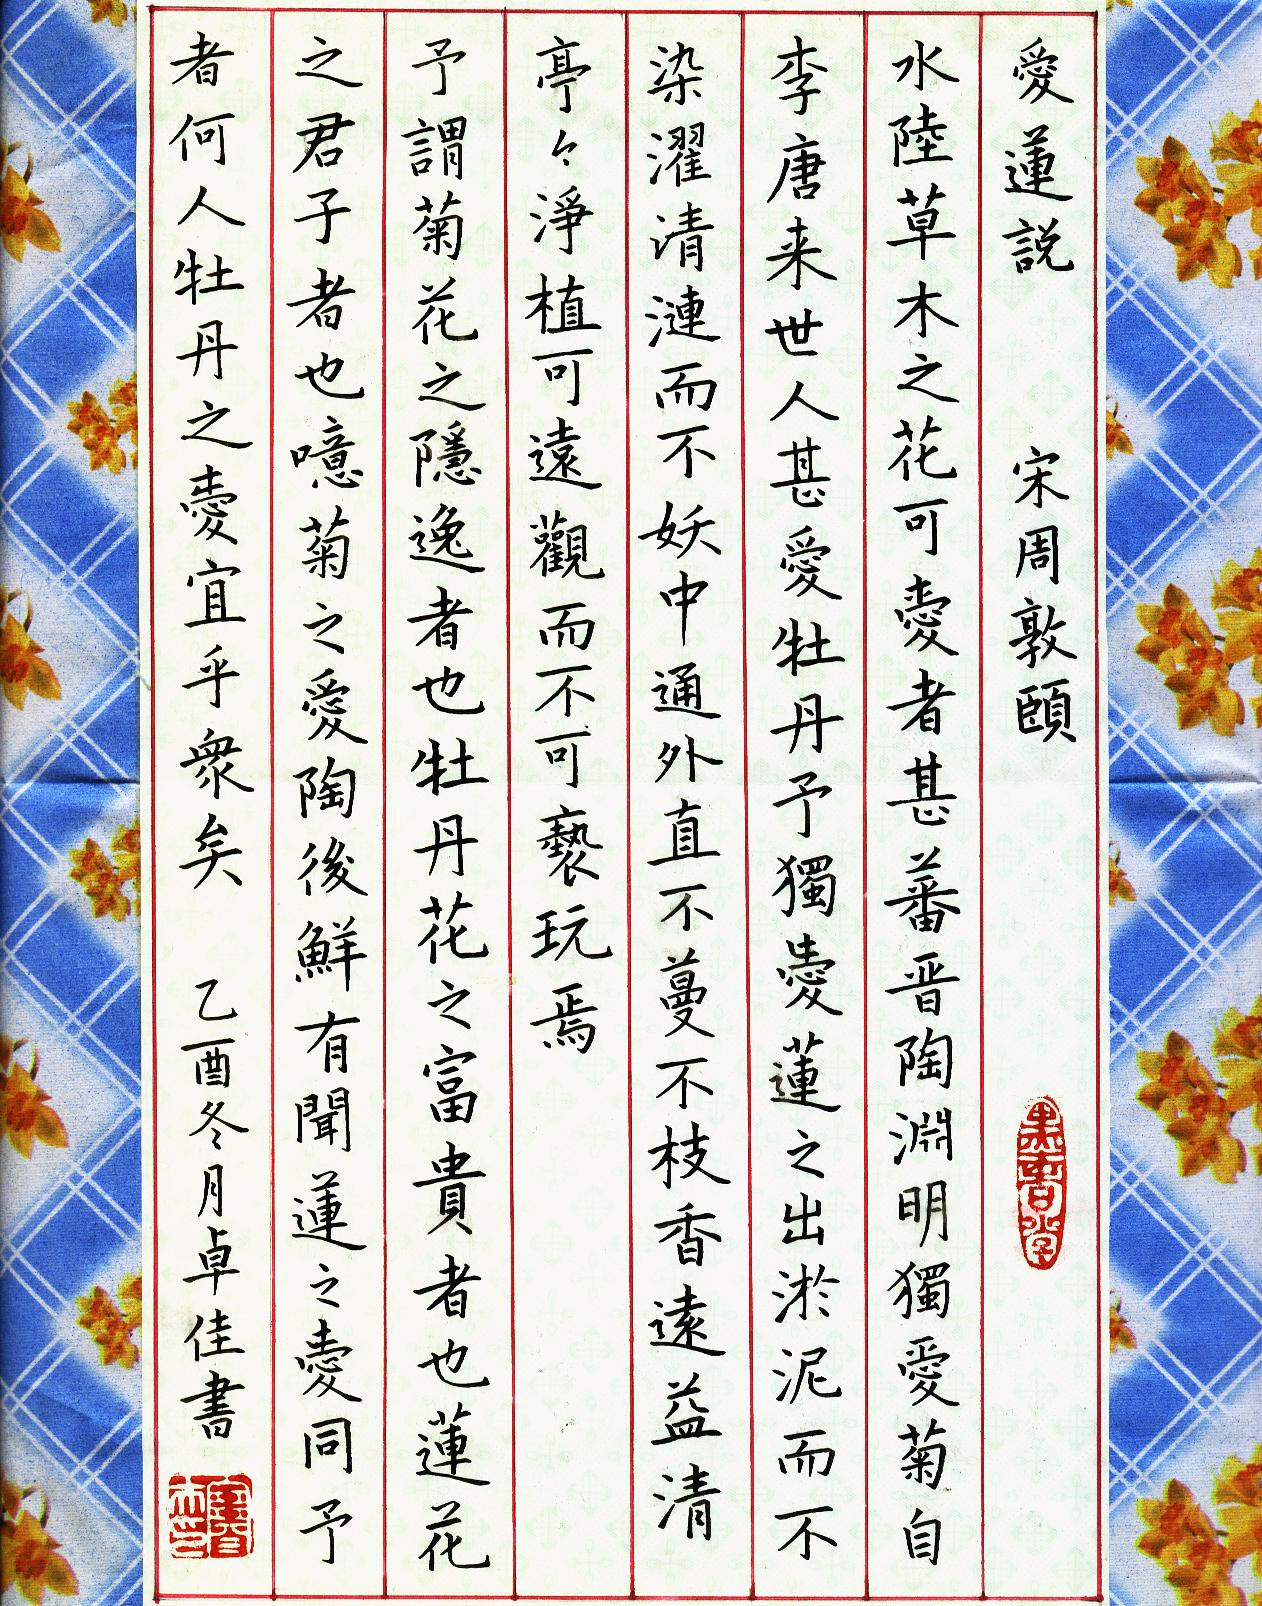 愛蓮説 宋周敦頤
水陸草木之花可愛者甚蕃晋陶淵明獨愛菊自
李唐来世人甚愛牡丹予獨愛蓮之出淤泥而不
染濯清漣而不妖中通外直不蔓不枝香遠益清
亭々淨植可遠觀而不可褻玩焉
予謂菊花之隱逸者也牡丹花之富貴者也蓮花
之君子者也噫菊之愛陶後鮮有聞蓮之愛同予
者何人牡丹之愛宜乎衆矣 乙酉冬月卓佳書